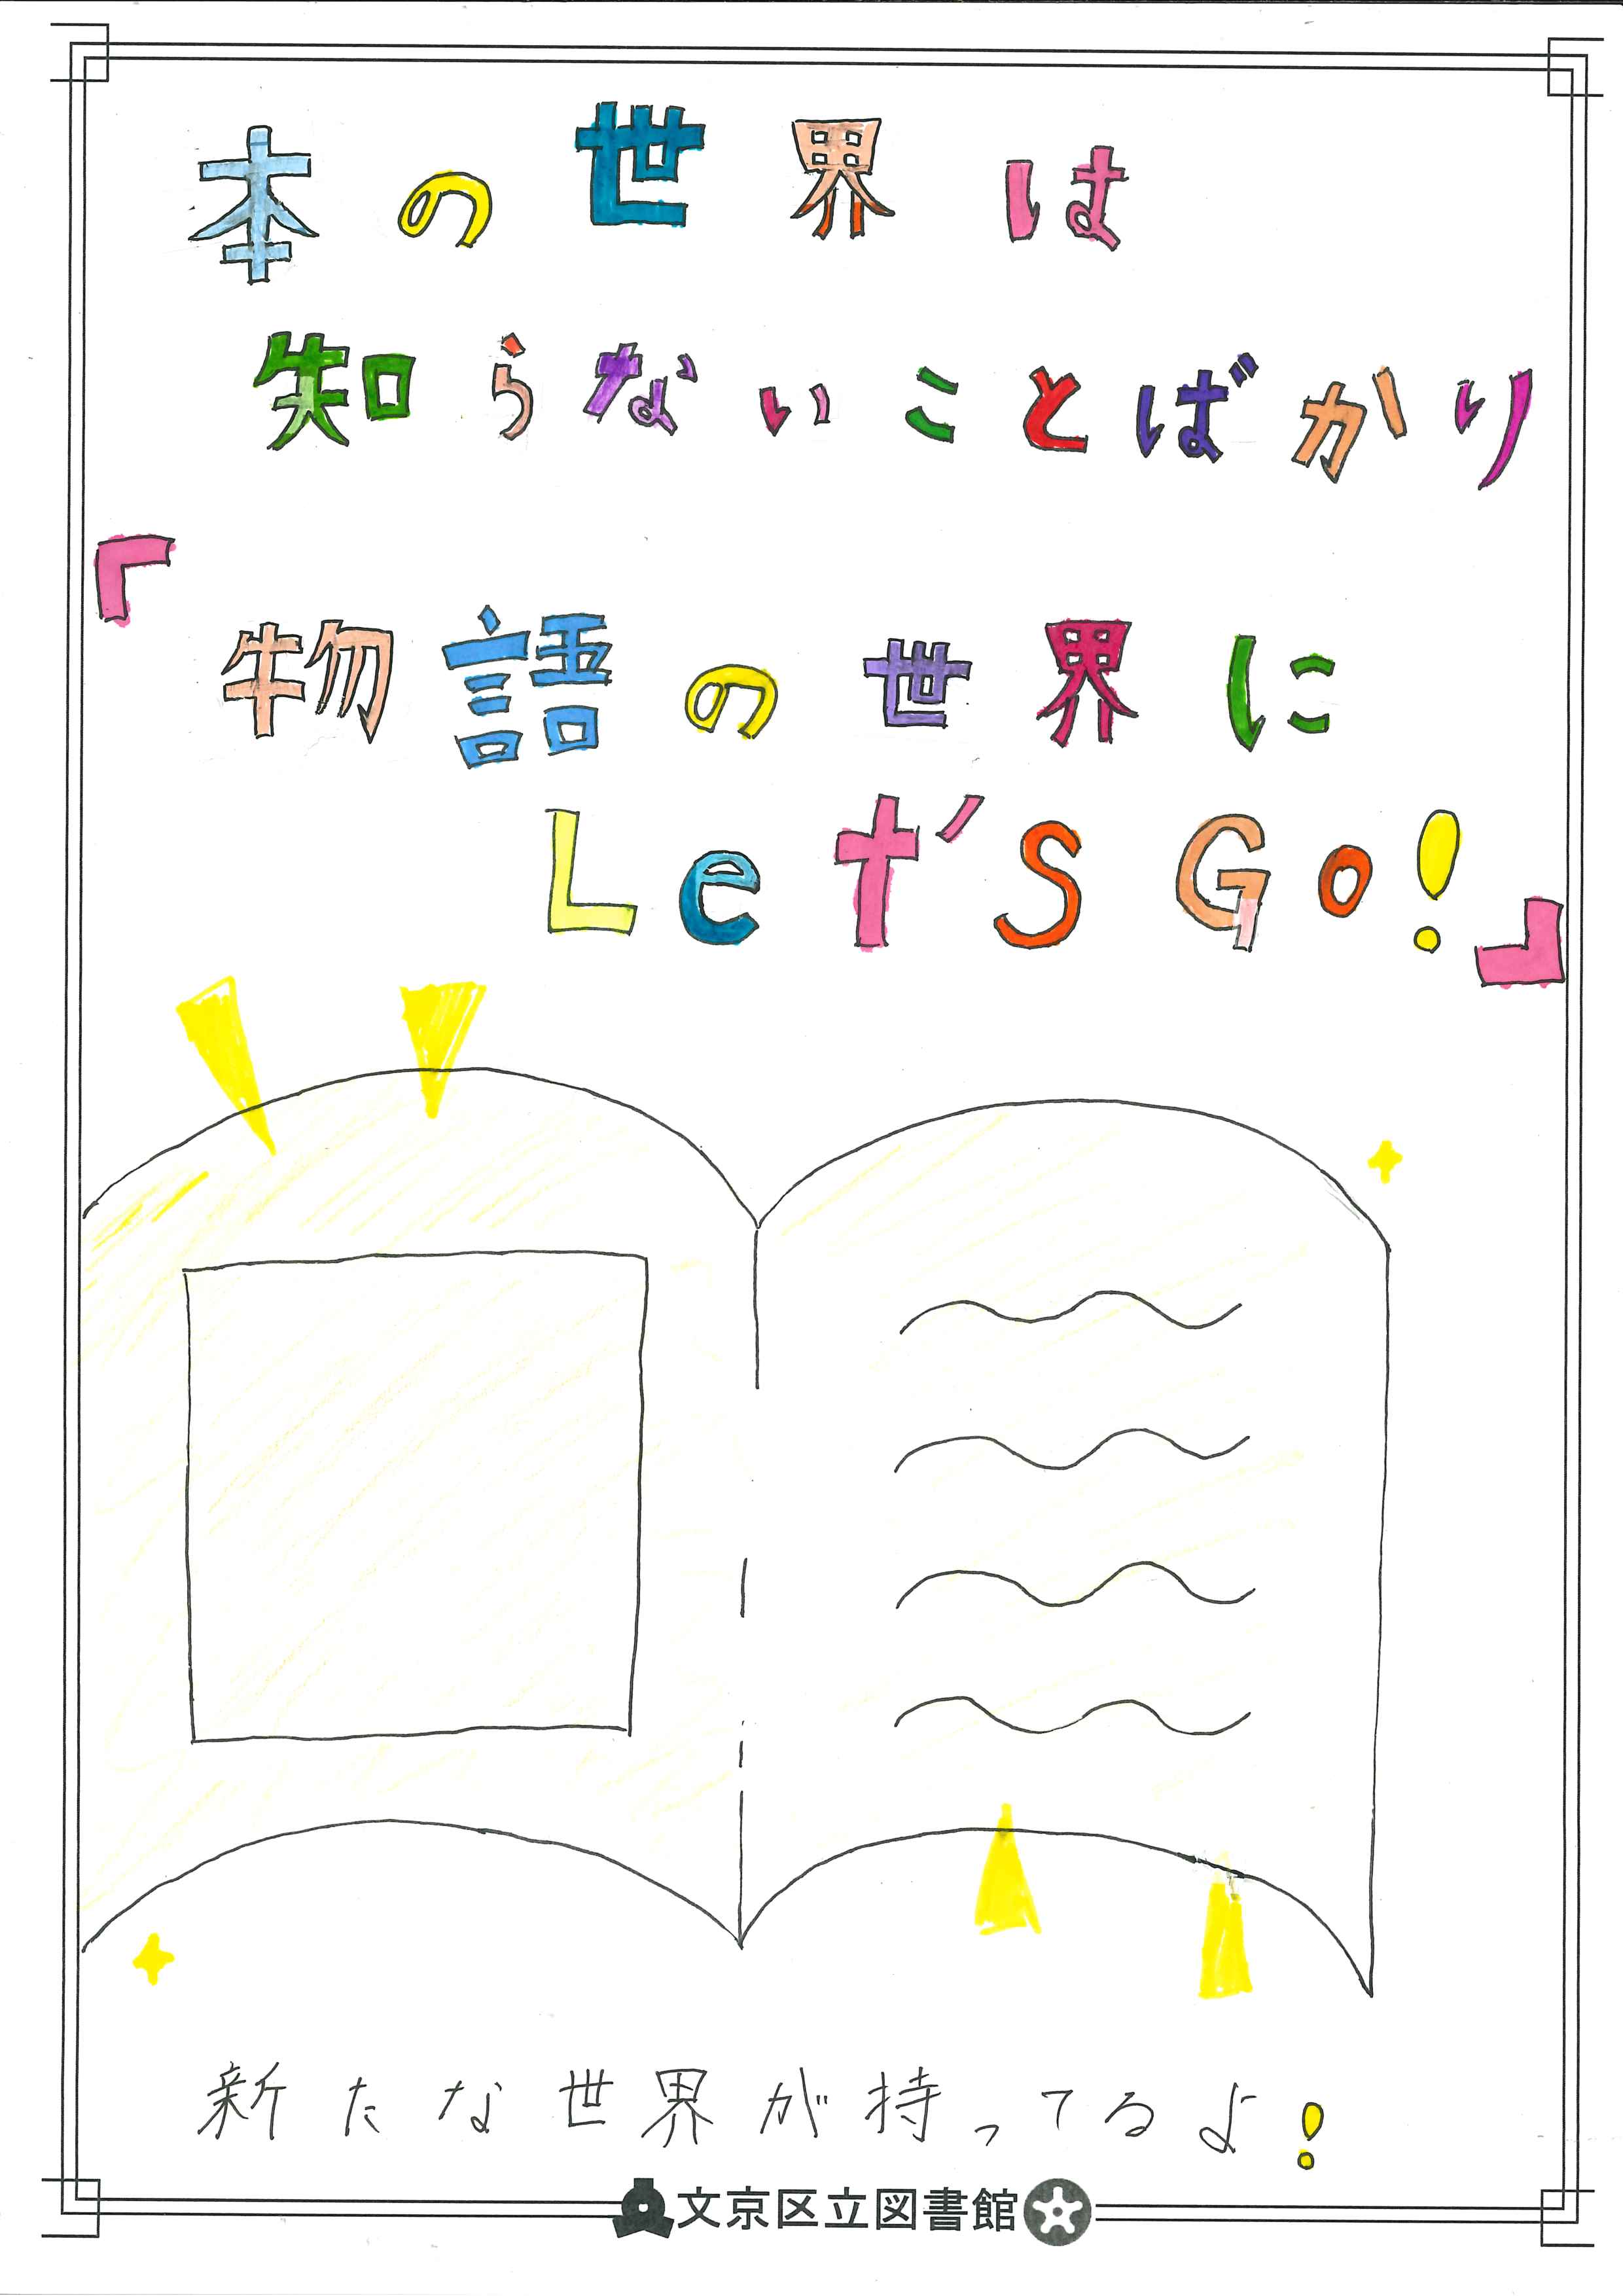 本の世界は
知らないことばかり
「物語の世界に
Let'S Go!」
新たな世界が持ってるよ!
文京区立図書館